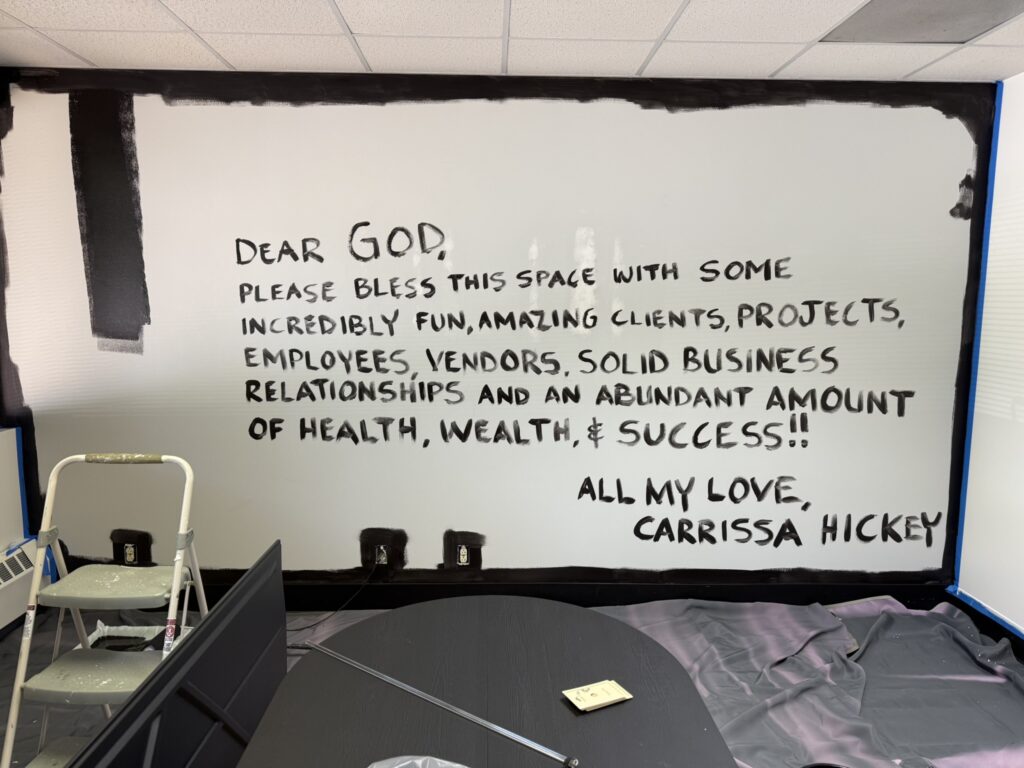 DEAR GOD,
PLEASE BLESS THIS SPACE WITH SOME
INCREDIBLY FUN, AMAZING CLIENTS, PROJECTS,
EMPLOYEES, VENDORS, SOLID BUSINESS
RELATIONSHIPS AND AN ABUNDANT AMOUNT
OF HEALTH, WEALTH, & SUCCESS!!
ALL MY LOVE,
CARRISSA HICKEY